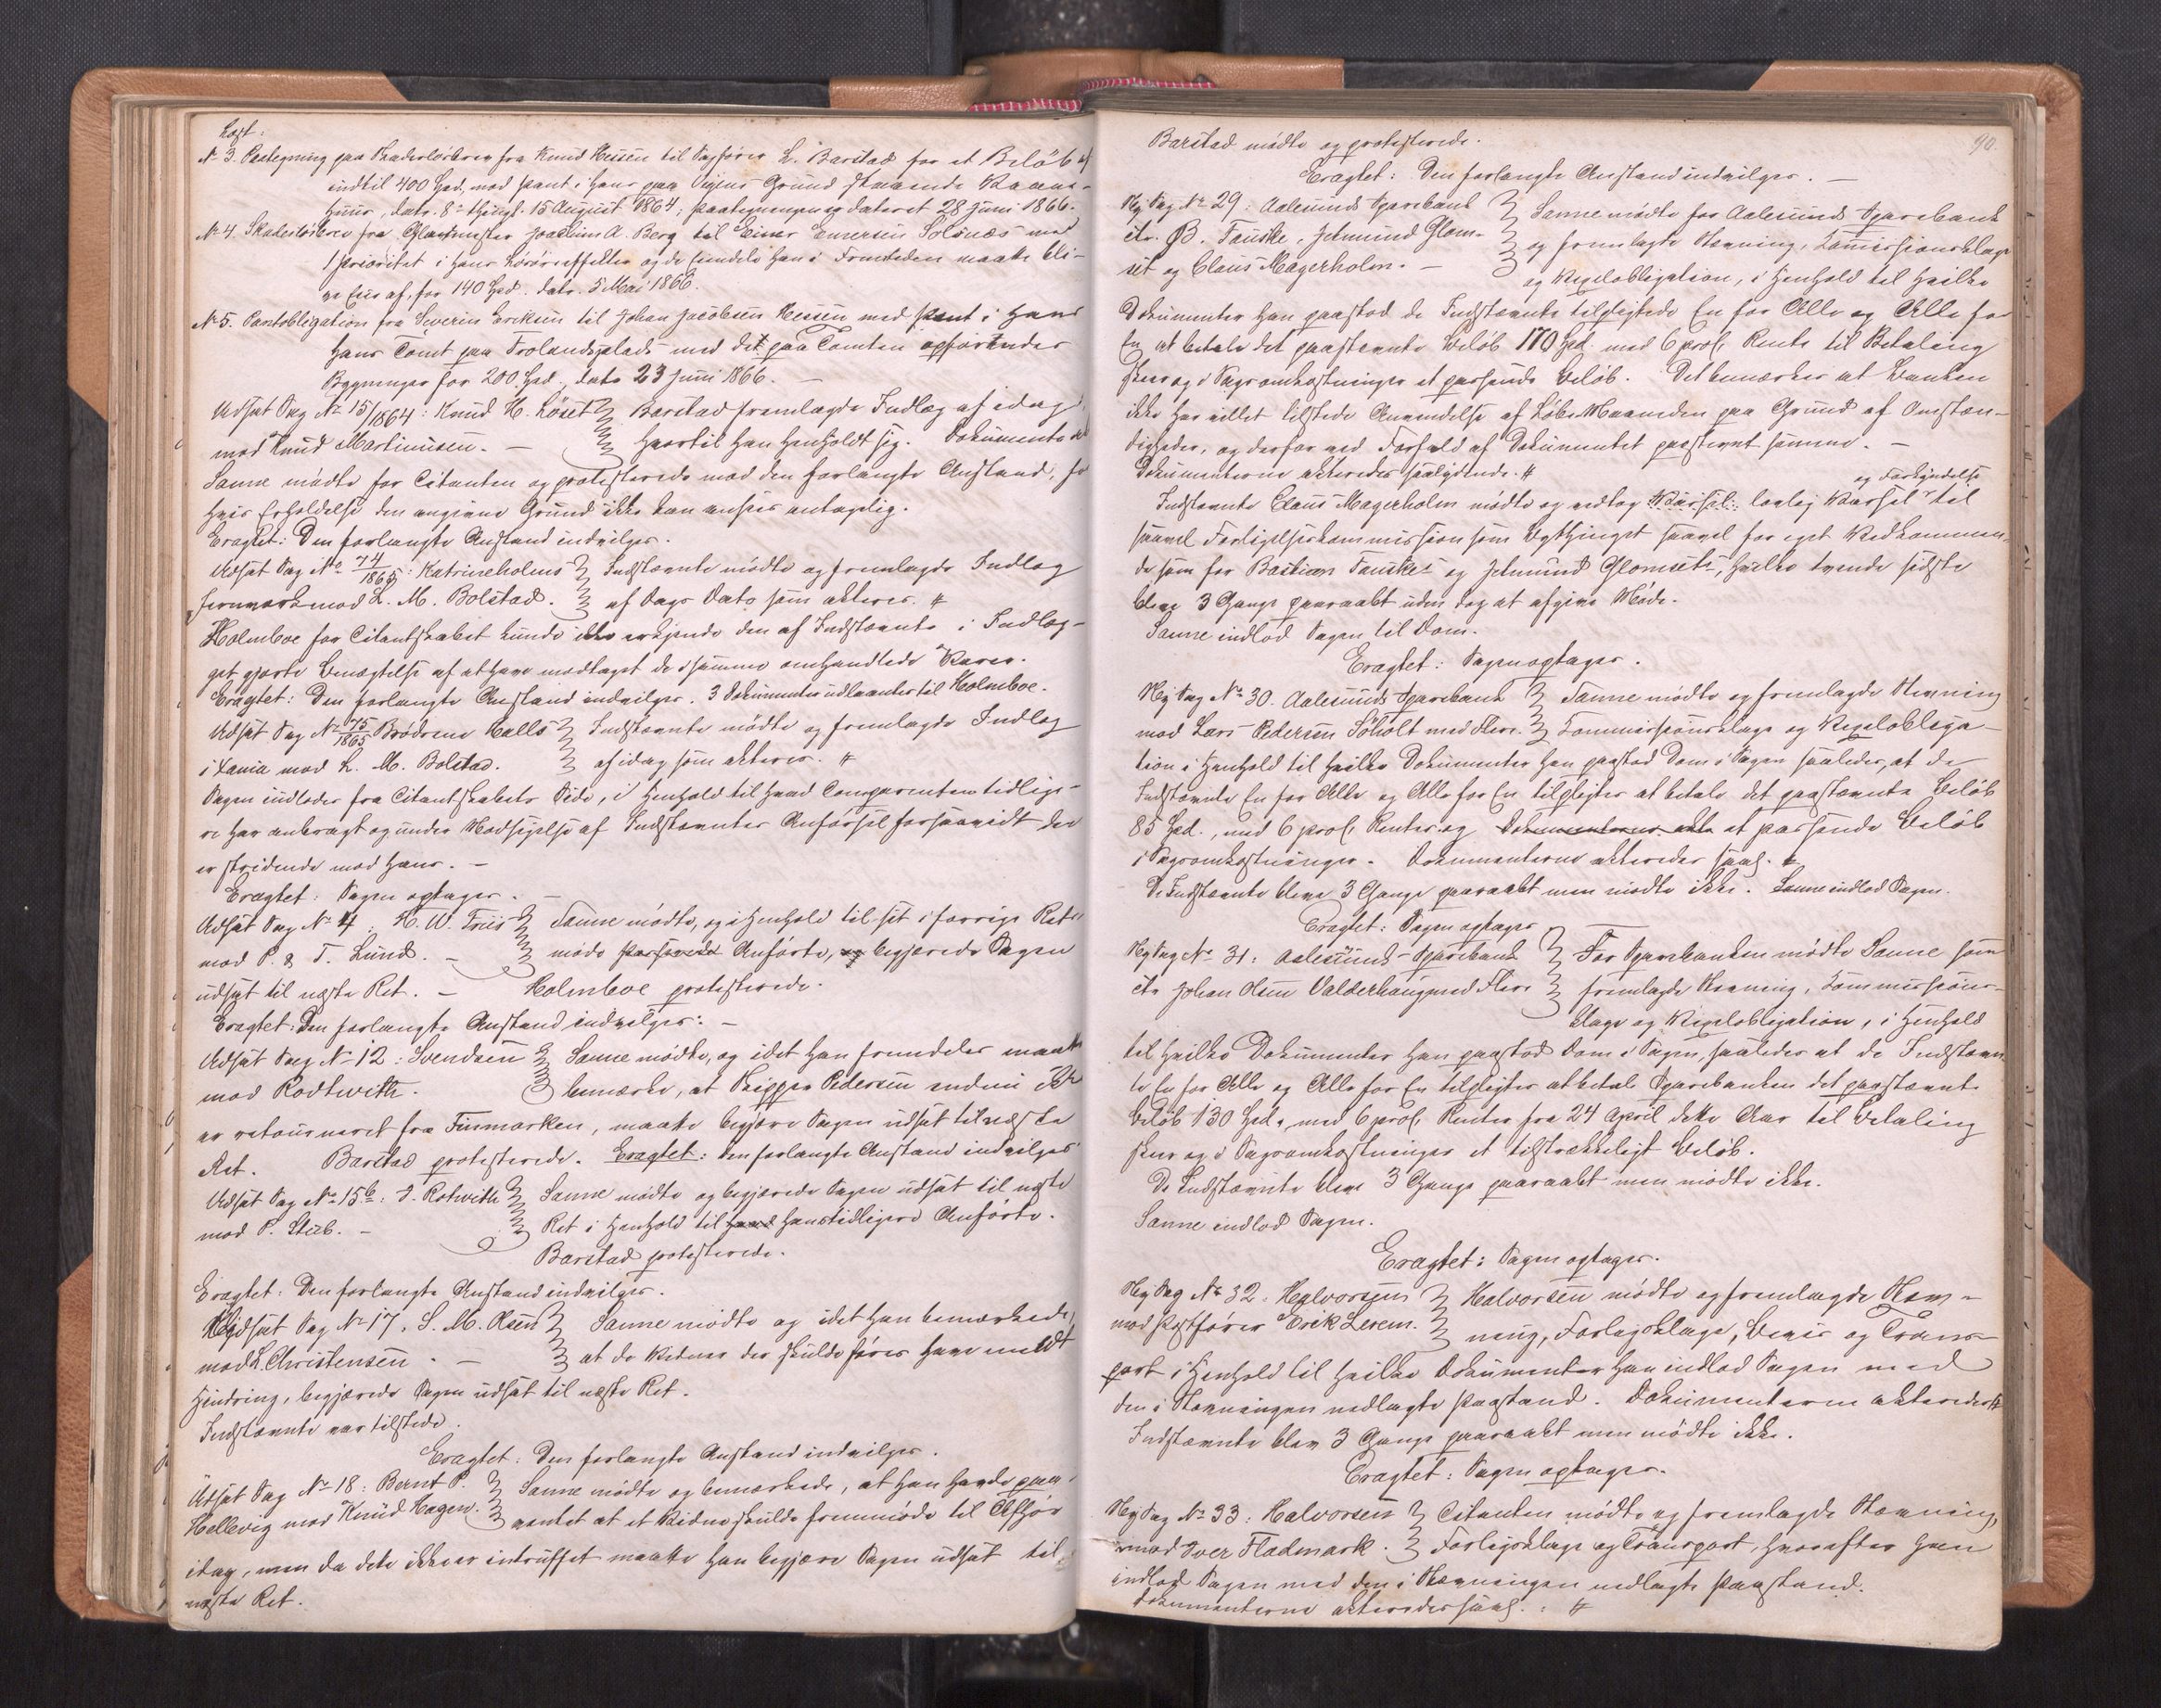 Læst:
No 3. Paategning paa Skadesløsbrev fra Knud Hessen til Sagfører L. Barstad for et Beløb af
indtil 400 Spd. mod Pant i hans paa Grund staaende Vaane-
huus, datr. 8de thingl. 15 August 1864; Paategningen er dateret 28 Juni 1866.
No 4. Skadesløsbrev fra Glarmester Joachim A. Berg til Einar Emersen Solsnæs med
1 Prioritet i hans Løsøreeffekter og de Eiendele han i Fremtiden maatte bli-
ve Eier af, for 140 Spd. datr. 5 Mai 1866.
No 5. Pantobligation fra Severin Eriksen til Johan Jacobsen Hessen med Pant i hans
hans Tomt paa Trolandsplads med det paa Tomten opførendes
Bygninger for 200 Spd., datr 23 Juni 1866. —
Udsat Sag No 15/1864: Knud H. Løset Barstad fremlagde Indlæg af idag
mod Knud Martinusen. — hvortil han henholdt sig. Dokumentet
Sanne mødte for Citanten og protesterede mod den forlangte Anstand, for
hvis Erholdelse den angivne Grund ikke kan ansees antagelig.
Eragtet: Den forlangte Anstand indvilges.
Udsat Sag No 74/1865: Katrineholms Indstævnte mødte og fremlagde Indlæg
Jernværk mod L. M. Bolstad. af Dags Dato som akteres. #
Holmboe for Citantskabet kunde ikke erkjende den af Indstævnte i Indlæg-
get gjorte Benægtelse af at have modtaget de i samme omhandlede Varer.
Eragtet: Den forlangte Anstand indvilges. 3 Dokumenter udlaantes til Holmboe.
Udsat Sag No 75/1865 Brødrene Halls Indstævnte mødte og fremlagde Indlæg
i Xania mod L. M. Bolstad. af idag som akteres. #
Sagen indlodes fra Citantskabets Side, i Henhold til hvad Comparenten tidlige-
re har anbragt og under Modsigelse af Indstævntes Anførsel forsaavidt den
er stridende mod hans. —
Eragtet: Sagen optages. —
Udsat Sag No 4: H. W. Friis Sanne mødte, og i Henhold til sit i forrige Rets
mod P. & T. Lund. — møde Anførte, og begjærede Sagen
udsat til næste Ret. — Holmboe protesterede.
Eragtet: Den forlangte Anstand indvilges: —
Udsat Sag No 12: Svendsen Sanne mødte, og idet han fremdeles maatte
mod Rodtwith. bemærke, at Skipper Pedersen endnu ikke
er retourneret fra Finmarken, maatte begjære Sagen udsat til næste
Ret. Barstad protesterede. Eragtet: Den forlangte Anstand indvilges
Udsat Sag No 15b: J. Rotwith Sanne mødte og begjærede Sagen udsat til næste
mod P. Stub. — Ret i Henhold til hans tidligere Anførte.
Barstad protesterede.
Eragtet: Den forlangte Anstand indvilges.
Udsat Sag No 17. S. M. Olsen Sanne mødte og idet han bemærkede,
mod L. Christensen. — at de Vidner der skulde føres have meldt
Hindring, begjærede Sagen udsat til næste Ret.
Indstævnte var tilstede.
Eragtet: Den forlangte Anstand indvilges.
Udsat Sag No 18: Bernt P. Sanne mødte og bemærkede, at han havde paa-
Hellevig mod Knud Hagen. ventet at et Vidne skulde fremmøde til Afhør
idag, men da dette ikke er intruffet maatte han begjære Sagen udsat til
næste Ret.
90
Barstad mødte og protesterede.
Eragtet: Den forlangte Anstand indvilges. —
Ny Sag No 29: Aalesunds Sparebank Sanne mødte for Aalesunds Sparebank
ctr. B. Fauske, Jetmund Glom- og fremlagde Stævning, Comissionsklage
set og Claus Magerholm. — og Vexelobligation, i Henhold til hvilke
Dokumenter han paastod de Indstævnte tilpligtede En for Alle og Alle for
En at betale det paastævnte Beløb 170 Spd. med 6 pro% Rente til Betaling
skeer og i Sagsomkostninger et passende Beløb. Det bemærkes at Banken
ikke har villet tilstede Anvendelse af Løbe-Maaneden paa Grund af Omstæn-
digheder, og derfor ved Forfald af Dokumentet paastævnt samme. —
Dokumenterne akteredes saalydende. #
og Forkyndelse
Indstævnte Claus Magerholm mødte og vedtog Varsel: lovlig Varsel til
saavel Forligelseskommission som Bythinget saavel for eget Vedkommen-
de som for Bastian Fauskes og Jetmund Glomsets, hvilke tvende sidste
bleve 3 Gange paaraabt uden dog at afgive Møde.
Sanne indlod Sagen til Dom.
Eragtet: Sagen optages.
Ny Sag No 30. Aalesunds Sparebank Sanne mødte og fremlagde Stævning
mod Lars Pedersen Søholt med Flere. Commissionsklage og Vexelobliga-
tion i Henhold til hvilke Dokumenter han paastod Dom i Sagen saaledes, at de
Indstævnte En for Alle og Alle for En tilpligtes at betale det paastævnte Beløb
85 Spd., med 6 pro% Renter og Dokumenterne akte et passende Beløb
i Sagsomkostninger. Dokumenterne akteredes saal. #
De Indstævnte bleve 3 Gange paaraabt men mødte ikke. Sanne indlod Sagen.
Eragtet: Sagen optages
Ny Sag No 31: Aalesunds Sparebank For Sparebanken mødte Sanne som
ctr Johan Olsen Valderhaug med Flere fremlagde Stævning, Commissions-
klage og Vexelobligation, i Henhold
til hvilke Dokumenter han paastod Dom i Sagen, saaledes at de Indstævn-
te En for Alle og Alle for En tilpligtes at betale Sparebanken det paastævnte
Beløb 130 Spd., med 6 pro% Renter fra 24 April dette Aar til Betaling
skeer og i Sagsomkostninger et tilstrækkeligt Beløb.
De Indstævnte bleve 3 Gange paaraabt men mødte ikke.
Sanne indlod Sagen.
Eragtet: Sagen optages.
Ny Sag No 32. Halvorsen Halvorsen mødte og fremlagde Stæv-
mod Postfører Erik Lerem. ning, Forligsklage, Beviis og Trans-
port i Henhold til hvilke Dokumenter han indlod Sagen med
den i Stævningen nedlagte Paastand. Dokumenterne akteredes #
Indstævnte blev 3 Gange paaraabt men mødte ikke.
Eragtet: Sagen optages.
Ny Sag No 33: Halvorsen Citanten mødte og fremlagde Stævning,
mod Iver Fladmark. Forligsklage og Transport, hvorefter han
indlod Sagen med den i Stævningen nedlagte Paastand.
Dokumenterne akteredes saal.: #